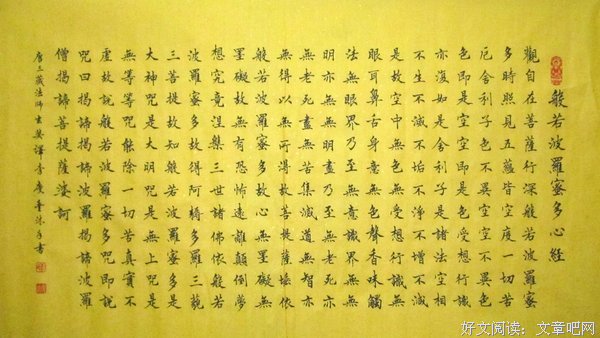 般若波羅蜜多心經
觀自在菩薩行深般若波羅蜜
多時照見五蘊皆空度一切苦
厄舍利子色不異空空不異色
色即是空空即是色受想行識
亦復如是舍利子是諸法空相
不生不滅不垢不淨不增不減
是故空中無色無受想行識無
眼耳鼻舌身意無色聲香味觸
法無眼界乃至無意識界無無
明亦無無明盡乃至無老死亦
無老死盡無苦集滅道無智亦
無得以無所得故菩提薩埵依
般若波羅蜜多故心無罣礙無
罣礙故無有恐怖遠離顛倒夢
想究竟涅槃三世諸佛依般若
波羅蜜多故得阿耨多羅三藐
三菩提故知般若波羅蜜多是
大神咒是大明咒是無上咒是
無等等咒能除一切苦真實不
虛故說般若波羅蜜多咒即說
咒曰揭諦揭諦波羅揭諦波羅
僧揭諦菩提薩婆訶
唐三藏法師玄奘譯 李 沐手書
好文阅读：文章吧网